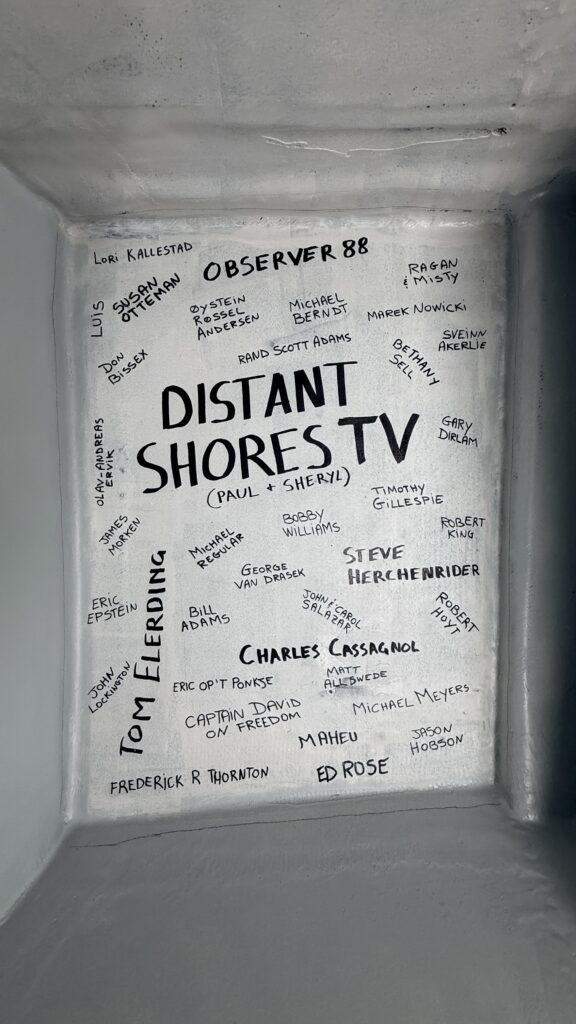 LORI KALLESTAD
OBSERVER 88
RAGAN
& MISTY
LUIS
SUSAN
OTTEMAN
ØYSTEIN
RØSSEL
ANDERSEN
MICHAEL
BERNDT
MAREK NOWICKI
DON
BISSEX
RAND SCOTT ADAMS
BETHANY
SELL
SVEINN
AKERLIE
DISTANT
SHORES TV
(PAUL + SHERYL)
GARY
DIRLAM
OLAV-ANDREAS
ERVIK
JAMES
MORKEN
MICHAEL
REGULAR
BOBBY
WILLIAMS
TIMOTHY
GILLESPIE
ROBERT
KING
GEORGE
VAN DRASEK
STEVE
HERCHENRIDER
ERIC
EPSTEIN
TOM ELERDING
BILL
ADAMS
JOHN & CAROL
SALAZAR
ROBERT
HOYT
CHARLES CASSAGNOL
JOHN
LOCKINGTON
ERIC OP'T PONKJE
MATT
ALLSWEDE
CAPTAIN DAVID
ON FREEDOM
MICHAEL MEYERS
MAHEU
JASON
HOBSON
FREDERICK R THORNTON
ED ROSE